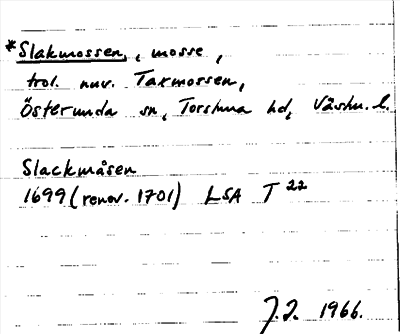 *Slakmossen, mosse,
trol. nuv. Tarmossen,
Österunda sn, Torstuna hd, Västm. l.
Slackmåsen
1699 (renov. 1701) LSA T 22
J.J. 1966.